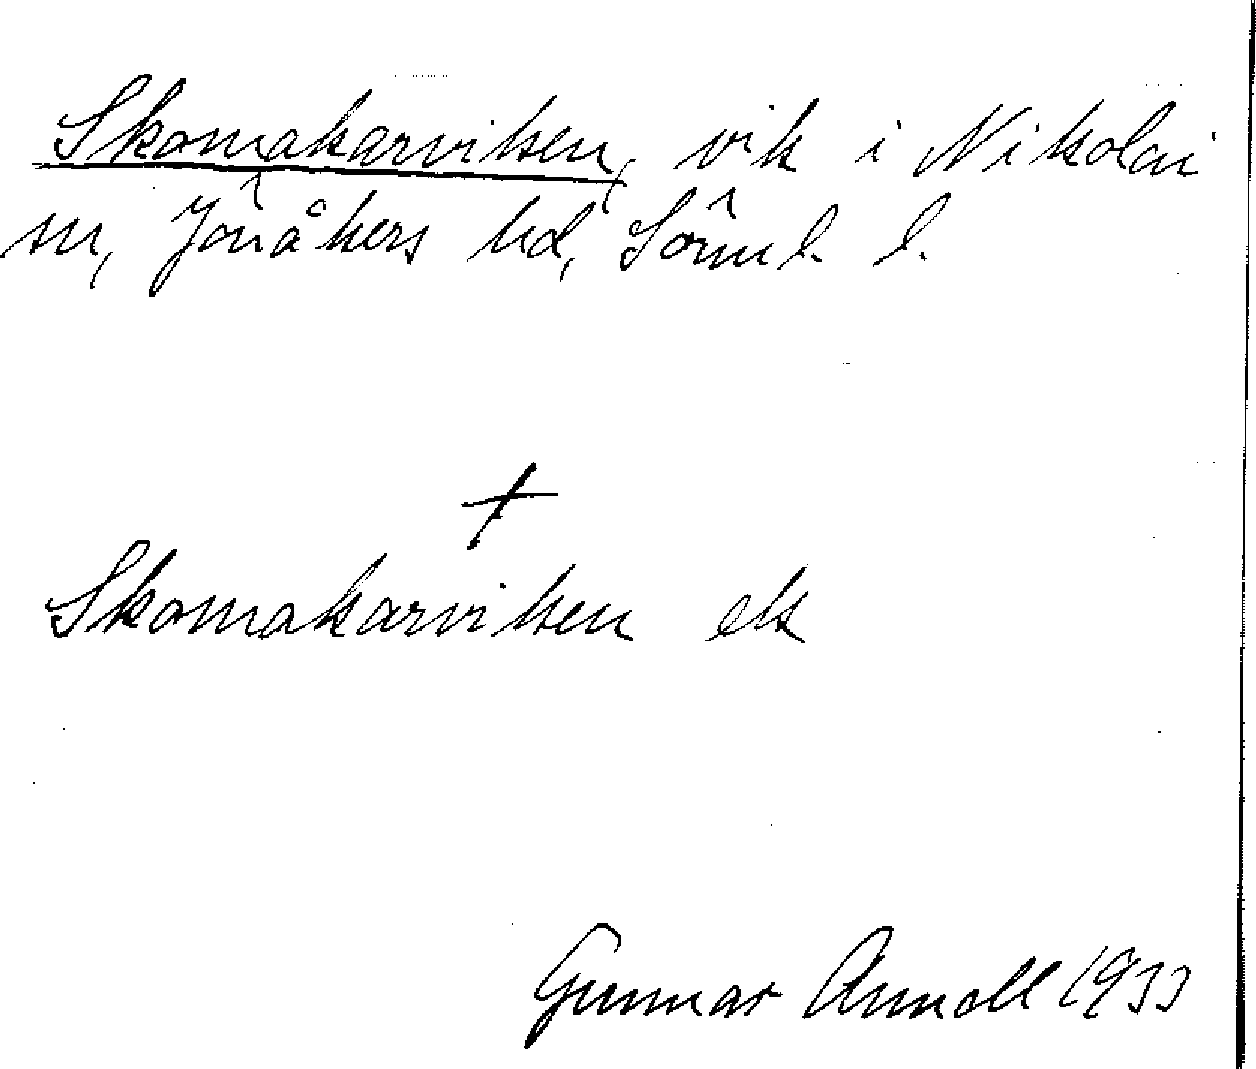 Skomakarviken, vik i Nikolai
sn, Jönåkers hd, Sörml. l.
+
Skomakarviken ek
Gunnar Arnell 1933